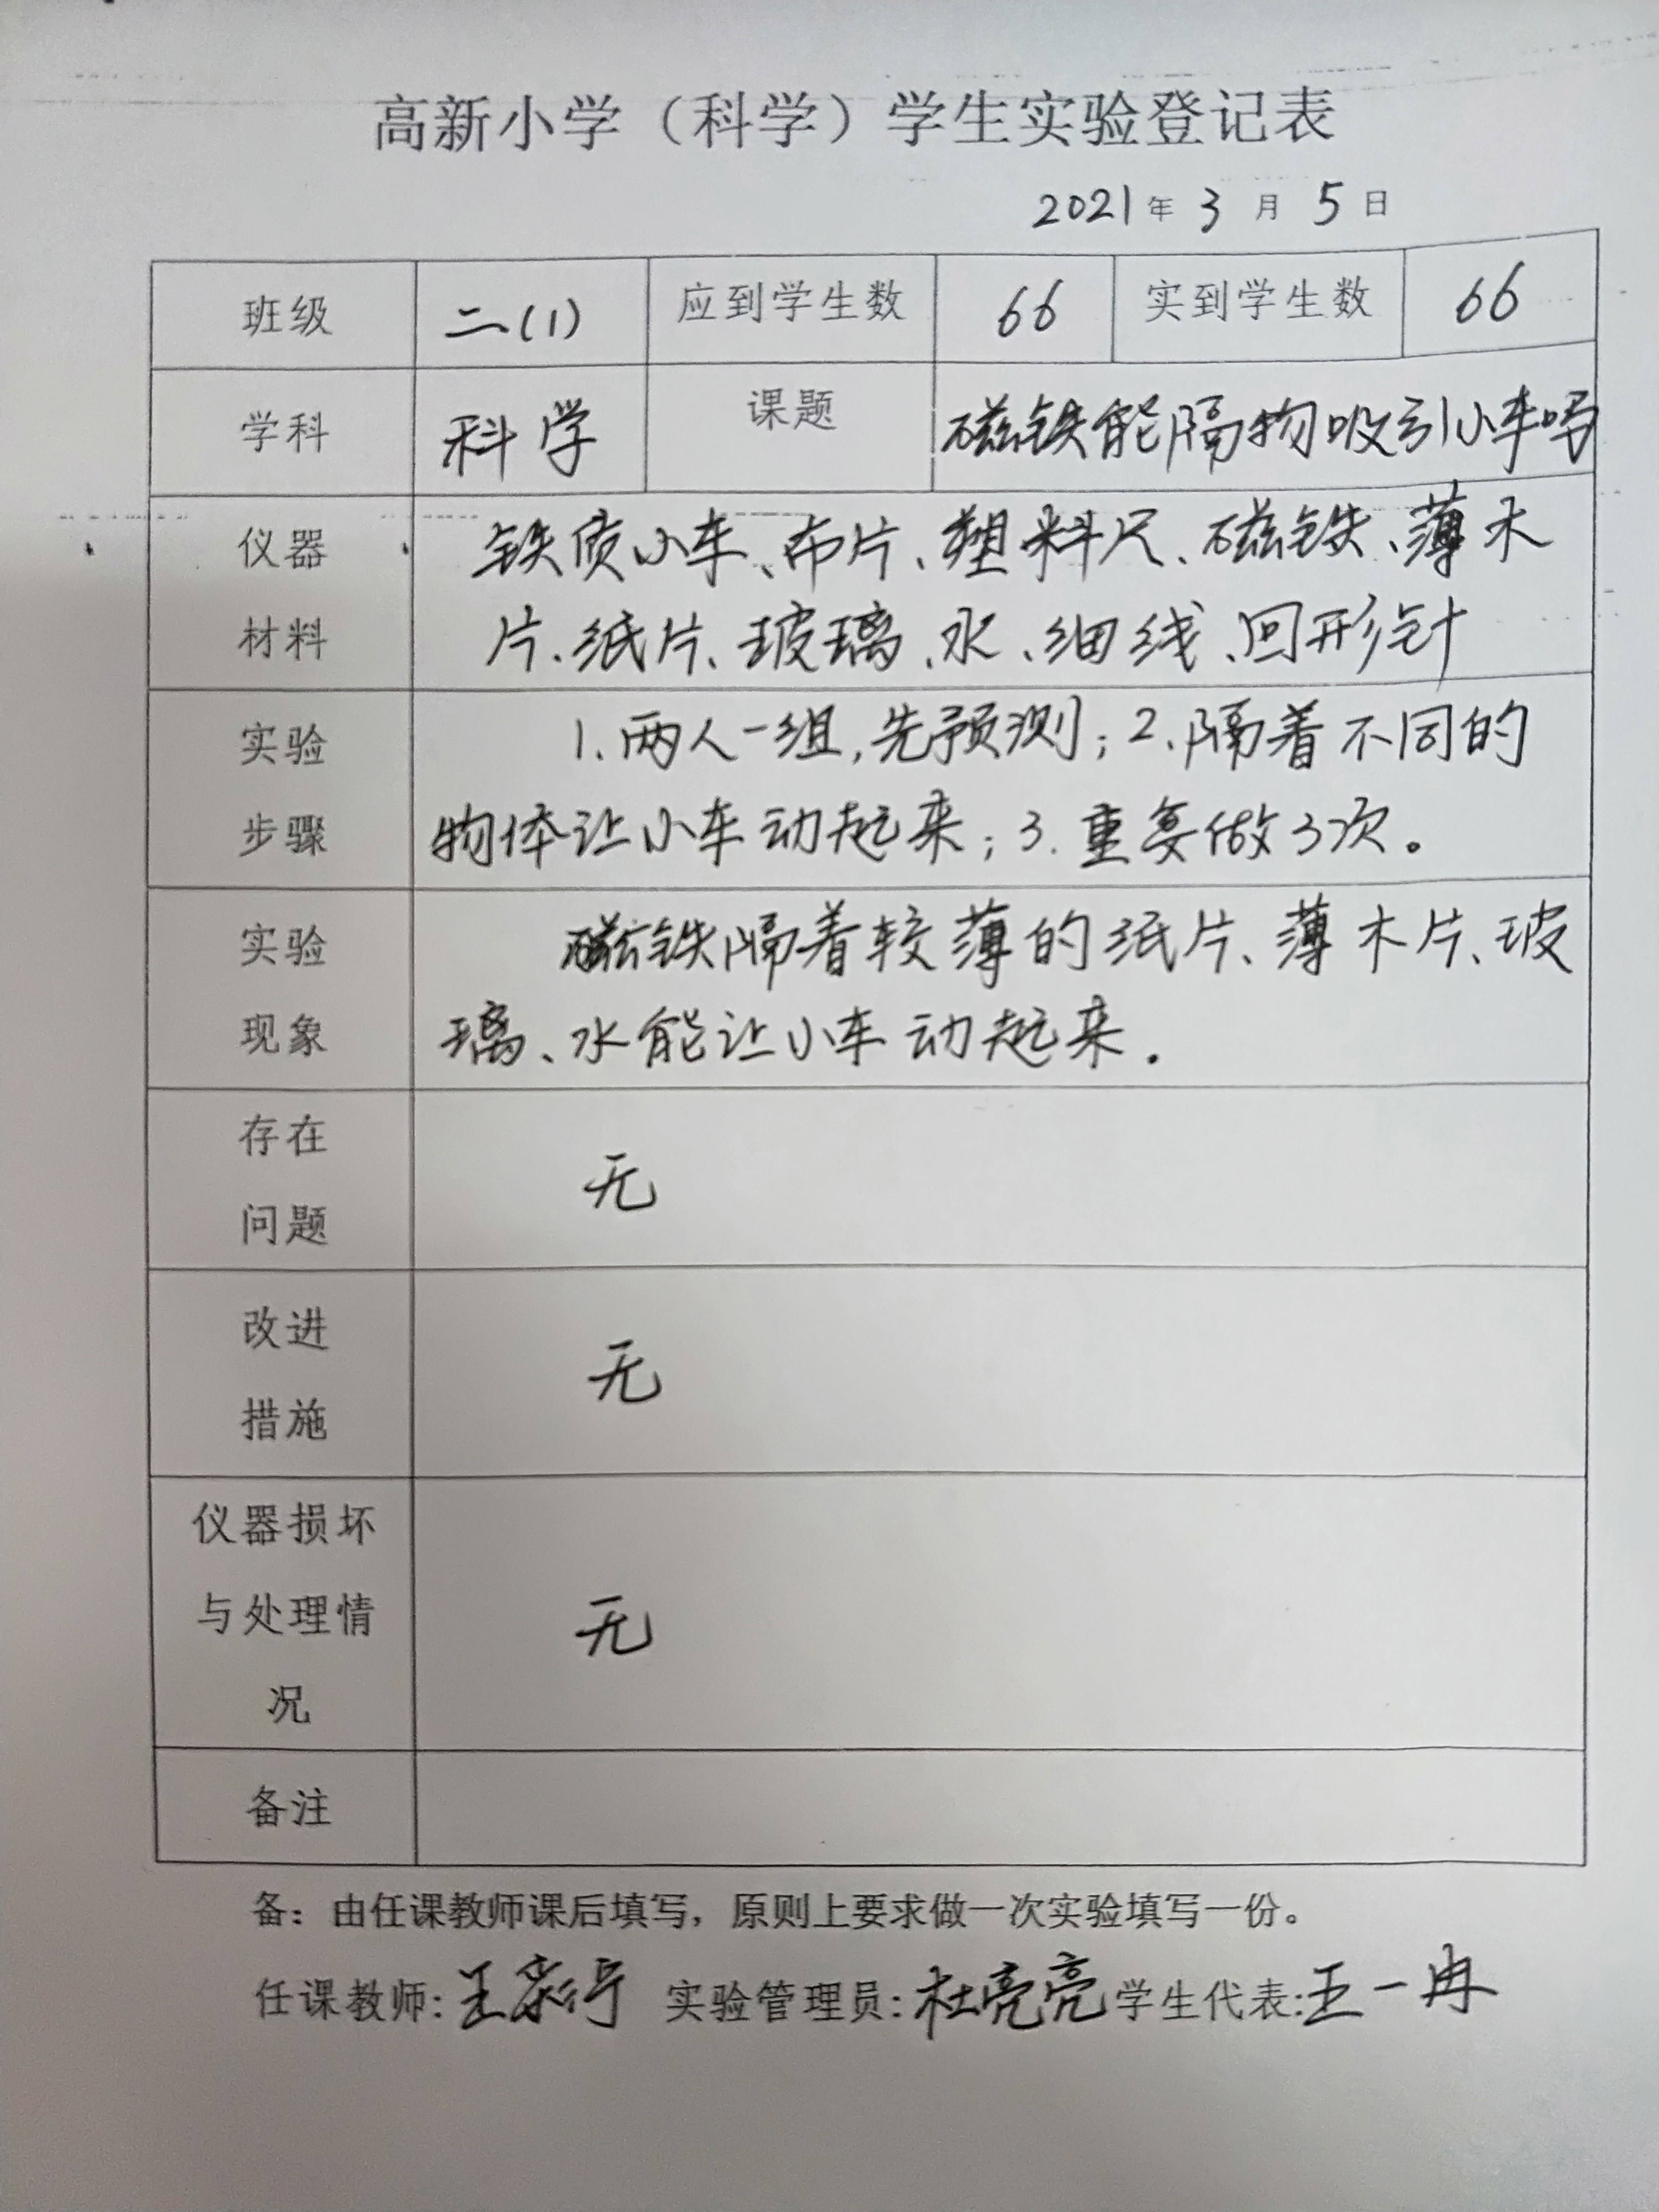 高新小学（科学）学生实验登记表
2021年 3 月 5 日
班级 二(1) 应到学生数 66 实到学生数 66
学科 科学 课题 磁铁能隔物吸引小车吗
仪器 铁质小车、布片、塑料尺、磁铁、薄木
材料 片、纸片、玻璃、水、细线、回形针
实验 1.两人一组,先预测；2.隔着不同的
步骤 物体让小车动起来；3.重复做3次。
实验 磁铁隔着较薄的纸片、薄木片、玻
现象 璃、水能让小车动起来.
存在
问题
无
改进
措施
无
仪器损坏
与处理情
况
无
备注
备：由任课教师课后填写，原则上要求做一次实验填写一份。
任课教师:王 实验管理员:杜亮亮 学生代表:王一冉